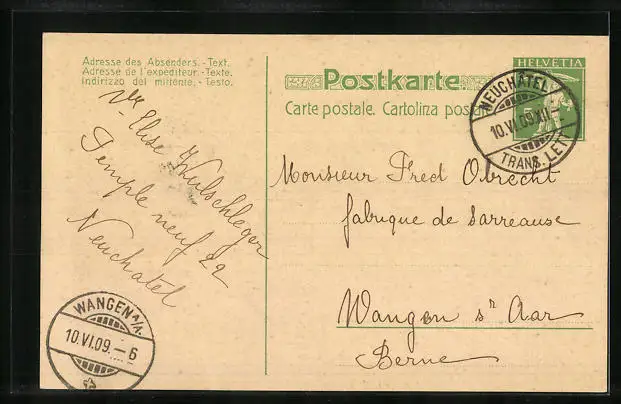 Adresse des Absenders. - Text.
Adresse de l'expéditeur. - Texte.
Indirizzo del mittente. - Testo.
Postkarte
Carte postale. Cartolina postale
HELVETIA
NEUCHÂTEL
10.VI.09.XII
TRANS. LETT
Vve Elise Wulschleger
Temple neuf 22
Neuchatel
Monsieur Fred Obrecht
fabrique de Sarreause
Wangen s/ Aar
Berne
WANGEN A/A.
10.VI.09.-6